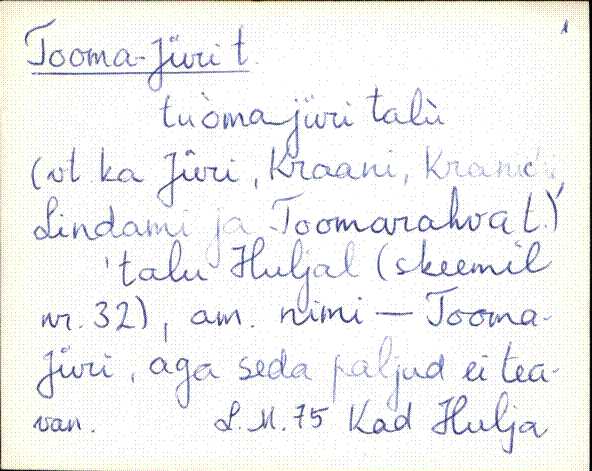 1
Tooma-Jüri t.
tuòma jüri talù
(vt. ka Jüri, Kraani,
Lindami ja Toomarahva t.)
talu Huljal (skeemil
nr. 32), am. nimi — Tooma-
Jüri, aga seda paljud ei tea-
van. L.M. 75 Kad Hulja